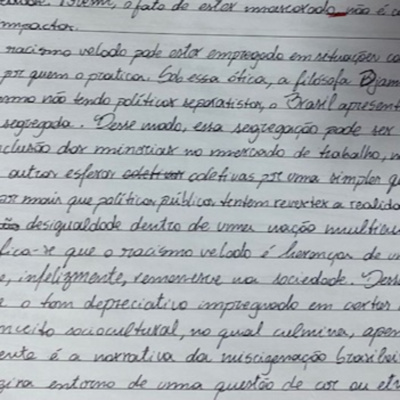 o fato de estar mascarado não é c
impactos.
racismo velado pode estar empregado em situações co
por quem o pratica. Sob essa ótica, a filósofa Djam
mo não tendo políticas separatistas, o Brasil apresent
segregada. Desse modo, essa segregação pode ser
clusão das minorias no mercado de trabalho, n
outras esferas coletivas coletivas por uma simples q
or mais que políticas públicas tentem reverter a realida
desigualdade dentro de uma nação multicu
fica-se que o racismo velado é heranças de u
e, infelizmente, remanesce na sociedade. Dess
e o tom depreciativo impregnado em certas
nceito sociocultural, no qual culmina, apen
ente é a narrativa da miscigenação brasilei
gira entorno de uma questão de cor ou et